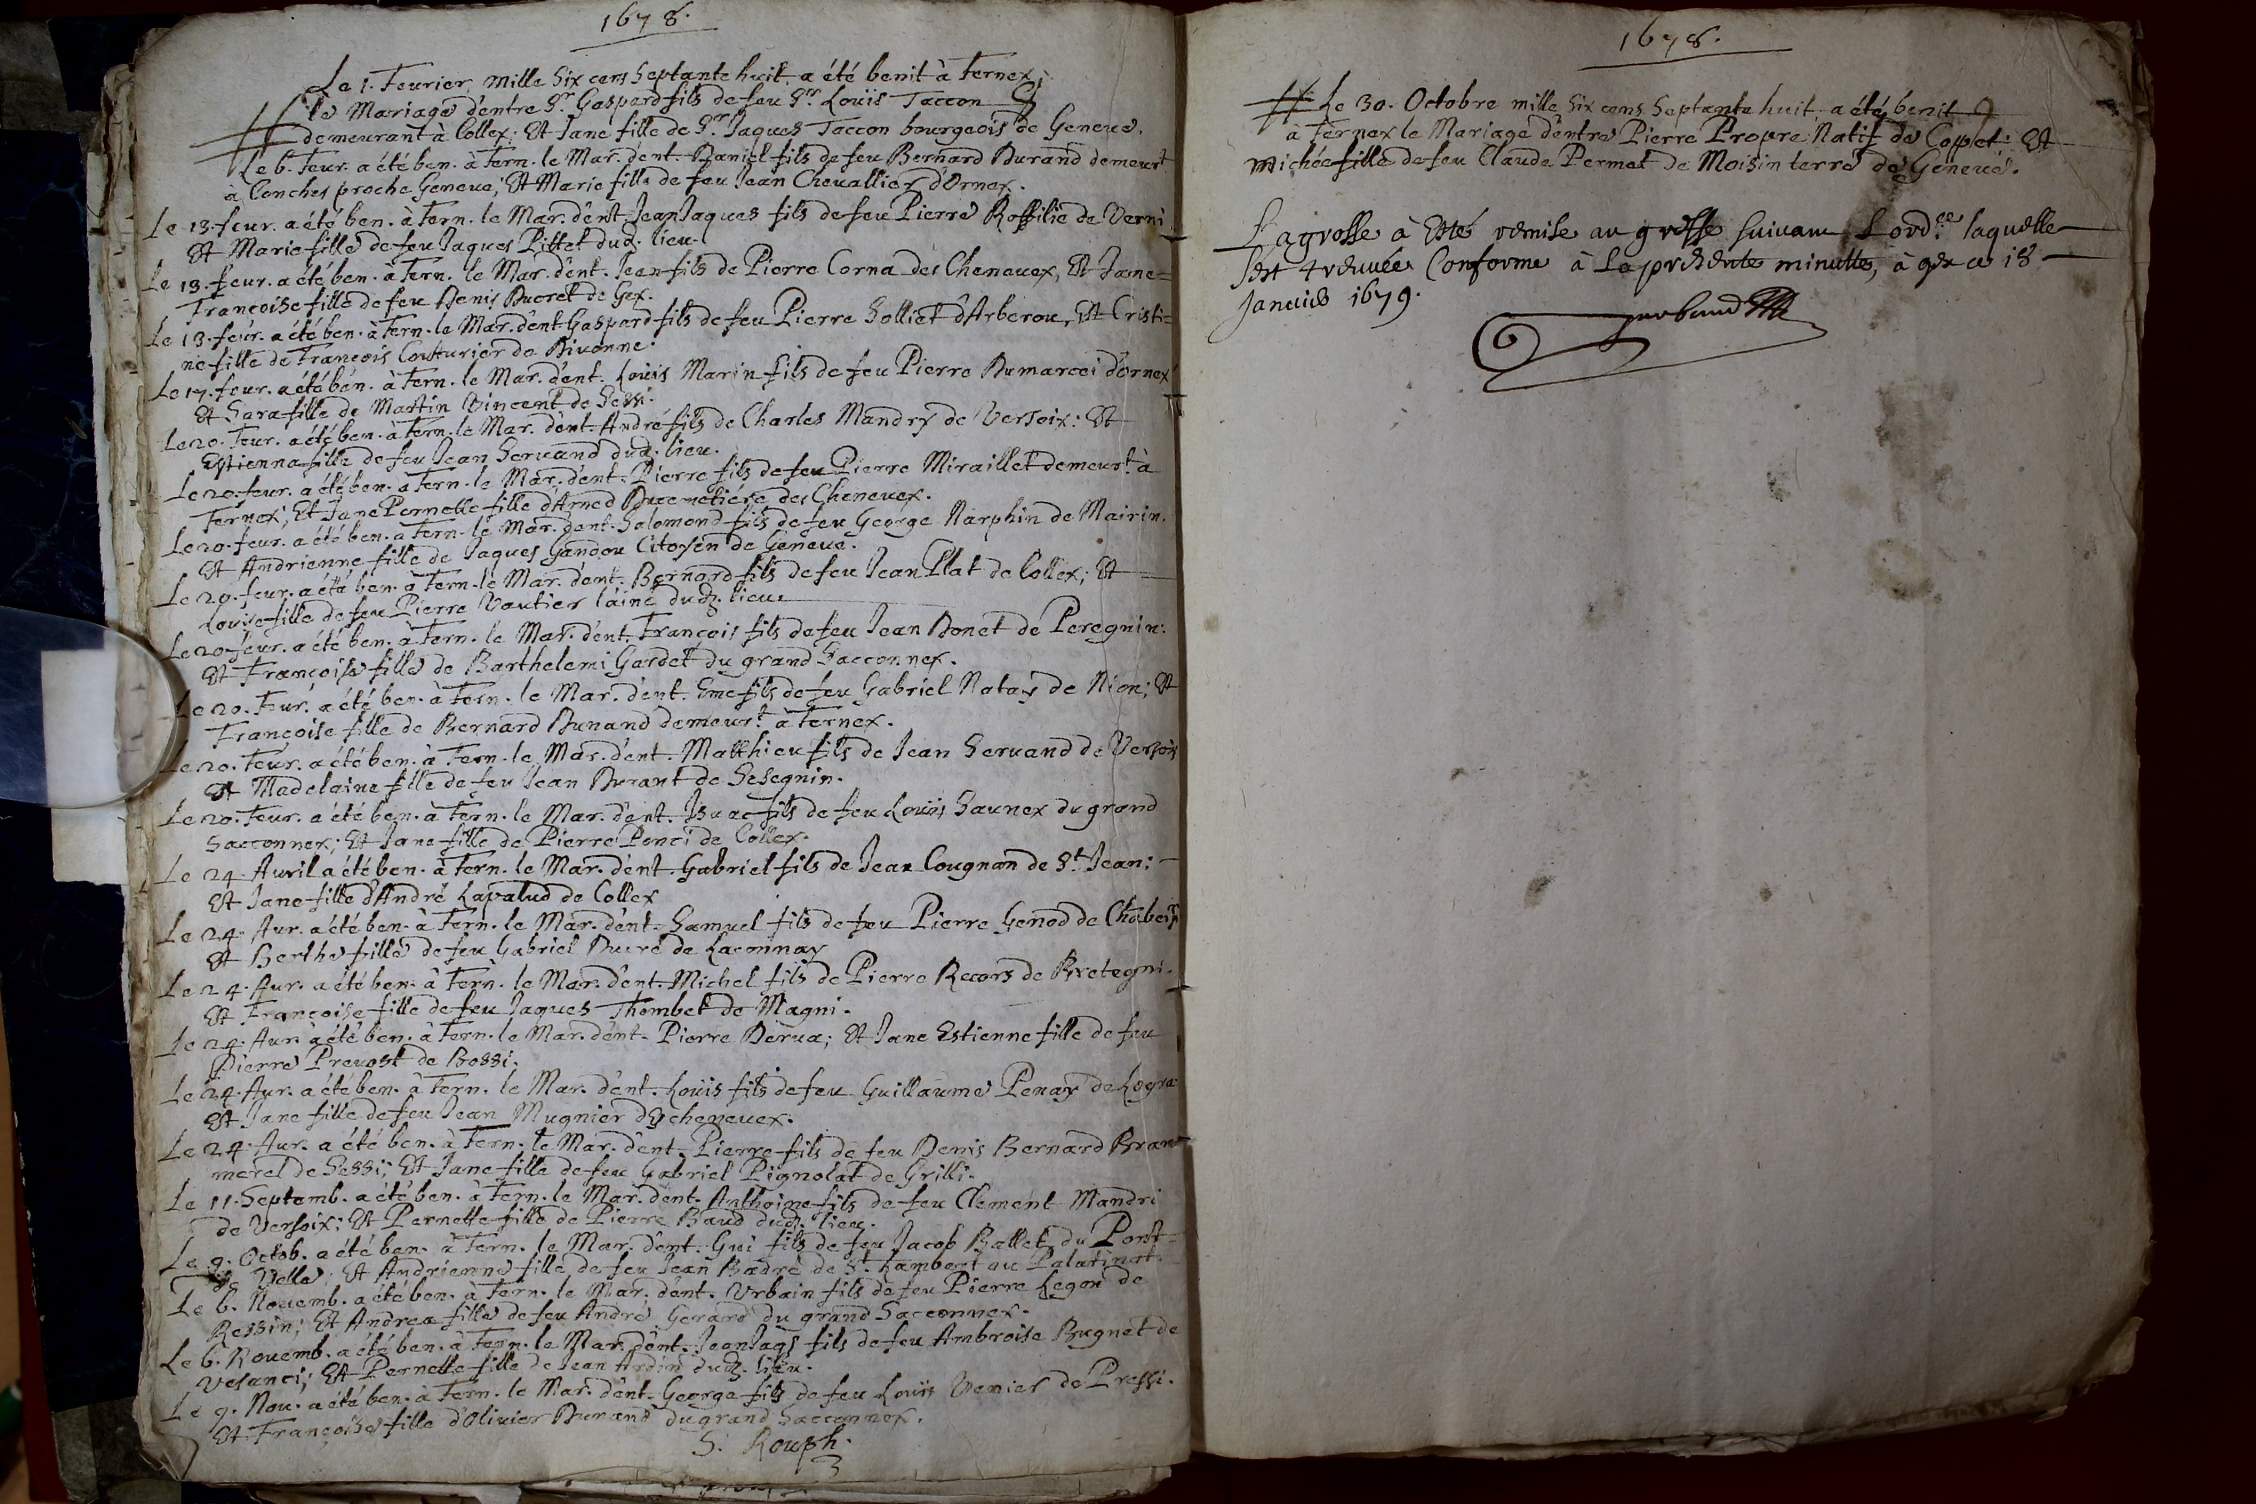 1678.
Le 1. Feurier, mille Six cens Septante huit a été benit à Fernex,
le Mariage d'entre Sr. Gaspard fils de feu Sr. Louïs Taccon
demeurant à Collex; Et Jane fille de Sr. Jaques Taccon bourgeois de Geneue.
Le 6. feur. a été ben. à Fern. le Mar. d'ent. Daniel fils de feu Bernard Durand demeurt.
à Conches proche Geneue; Et Marie fille de feu Jean Cheuallier d'Ornex.
Le 13. feur. a été ben. à Fern. le Mar. d'ent. Jean Jaques fils de feu Pierre Roffilie de Verni
Et Marie fille de feu Jaques Pittet dud. lieu.
Le 13. feur. a été ben. à Fern. le Mar. d'ent. Jean fils de Pierre Corna des Cheneuex, Et Jane=
Françoise fille de feu Denis Ducret de Gex.
Le 13. feur. a été ben. à Fern. le Mar. d'ent. Gaspard fils de feu Pierre Solliet d'Arberou, Et Cristi=
ne fille de François Coutturier de Diuonne.
Le 17. feur. a été ben. à Fern. le Mar. d'ent. Louïs Marin fils de feu Pierre Dumarcei d'Ornex
Et Sara fille de Martin Vincent de Sessi.
Le 20. Feur. a été ben. à Fern. le Mar. d'ent. André fils de Charles Mandry de Versoix: Et
Estienna fille de feu Jean Seruand dud. lieu.
Le 20. feur. a été ben. à Fern. le Mar. d'ent. Pierre fils de feu Pierre Miraillet demeurt. à
Fernex; Et Jane Pernette fille d'Amed Ducemetiére des Cheneuex.
Le 20. feur. a été ben. à Fern. le Mar. d'ent. Salomond fils de feu George Narphin de Mairin.
Et Andrienne fille de Jaques Gandou Citoyen de Geneue.
Le 20. feur. a été ben. à Fern. le Mar. d'ent. Bernard fils de feu Jean Plat de Collex; Et
Louise fille de feu Pierre Vautier l'ainé dud. lieu.
Le 20. feur. a été ben. à Fern. le Mar. d'ent. François fils de feu Jean Donet de Peregnin:
Et Françoise fille de Barthelemi Gardet du grand Sacconnex.
Le 20. Feur. a été ben. à Fern. le Mar. d'ent. Eme fils de feu Gabriel Natay de Nion; Et
Françoise fille de Bernard Dunand demeurt. à Fernex.
Le 20. Feur. a été ben. à Fern. le Mar. d'ent. Matthieu fils de Jean Seruand de Versoix
Et Madelaine fille de feu Jean Durant de Sesegnin.
Le 20. Feur. a été ben. à Fern. le Mar. d'ent. Isaac fils de feu Louïs Saunex du grand
Sacconnex; Et Jane fille de Pierre Ponci de Collex.
Le 24. Auril a été ben. à Fern. le Mar. d'ent. Gabriel fils de Jean Cougnan de St. Jean;
Et Jane fille d'André Lapalud de Collex
Le 24. Aur. a été ben. à Fern. le Mar. d'ent. Samuel fils de feu Pierre Genod de
Et Berthe fille de feu Gabriel Ducré de Laconnay
Le 24. Aur. a été ben. à Fern. le Mar. d'ent. Michel fils de Pierre Recors de Bretegni.
Et Françoise fille de feu Jaques Thombet de Magni.
Le 24. Aur. a été ben. à Fern. le Mar. d'ent. Pierre Derua; Et Jane Estienne fille de feu
Pierre Preuost de Bossi.
Le 24. Aur. a été ben. à Fern. le Mar. d'ent. Louïs fils de feu Guillaume Penay de Logra
Et Jane fille de feu Jean Mugnier d'Ycheneuex.
Le 24. Aur. a été ben. à Fern. le Mar. d'ent. Pierre fils de feu Denis Bernard Bram=
merel de Sessi; Et Jane fille de feu Gabriel Pignolat de Grilli.
Le 11. Septemb. a été ben. à Fern. le Mar. d'ent. Anthoine fils de feu Clement Mandri
de Versoix: Et Pernette fille de Pierre Baud dud. lieu.
Le 9. Octob. a été ben. à Fern. le Mar. d'ent. Gui fils de feu Jacob Ballet du Pont=
de Velle; Et Andrienne fille de feu Jean Badré de St. Lambert au Palatinat.
Le 6. Nouemb. a été ben. à Fern. le Mar. d'ent. Urbain fils de feu Pierre Legon de
Ressin; Et Andrea fille de feu André Gerard du grand Sacconnex.
Le 6. Nouemb. a été ben. à Fern. le Mar. d'ent. Jean Jaqs fils de feu Ambroise Bugnet de
Vesanci; Et Pernette fille de Jean Ardin dud. lieu.
Le 9. Nou. a été ben. à Fern. le Mar. d'ent. George fils de feu Louïs Venier de Pressi.
Et Françoise fille d'Oliuier Durand du grand Sacconnex.
S. Rouph.
1678.
Le 30. Octobre mille Six cens Septante huit a été benit
à Fernex le Mariage d'entre Pierre Propre Natif de Coppet: Et
Michée fille de feu Claude Permat de Moisin terre de Geneue.
La grosse à Esté remise au greffe suiuant Lordce. laquelle
sest treuuée Conforme à La presente minutte, à gex ce 18
Januier 1679.